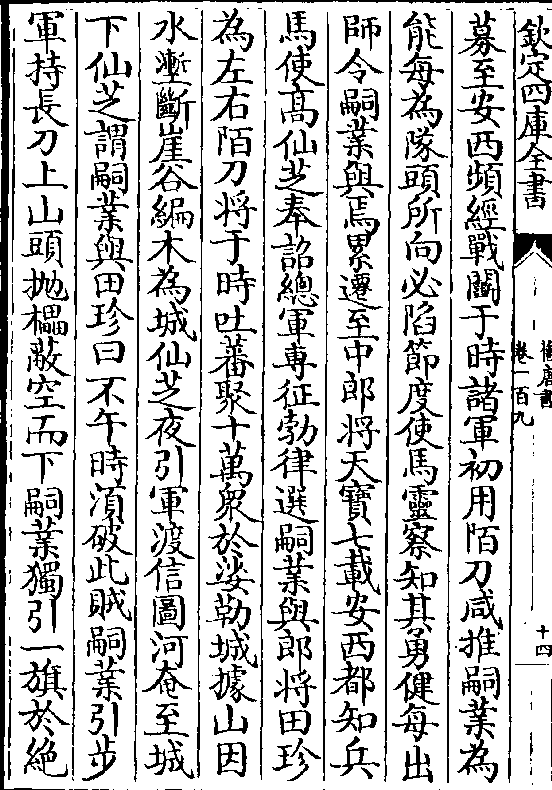 欽定四庫全書
舊唐書
卷一百九
十四
募至安西頻經戰鬬于時諸軍初用陌刀咸推嗣業為
能每為隊頭所向必陷節度使馬靈察知其勇健每出
師令嗣業與焉累遷至中郎將天寶七載安西都知兵
馬使髙仙芝奉詔總軍專征勃律選嗣業與郎將田珍
為左右陌刀將于時吐蕃聚十萬衆於娑勒城據山因
水塹斷崖谷編木為城仙芝夜引軍渡信圖河奄至城
下仙芝謂嗣業與田珍曰不午時須破此賊嗣業引步
軍持長刀上山頭抛櫑蔽空而下嗣業獨引一旗於絶